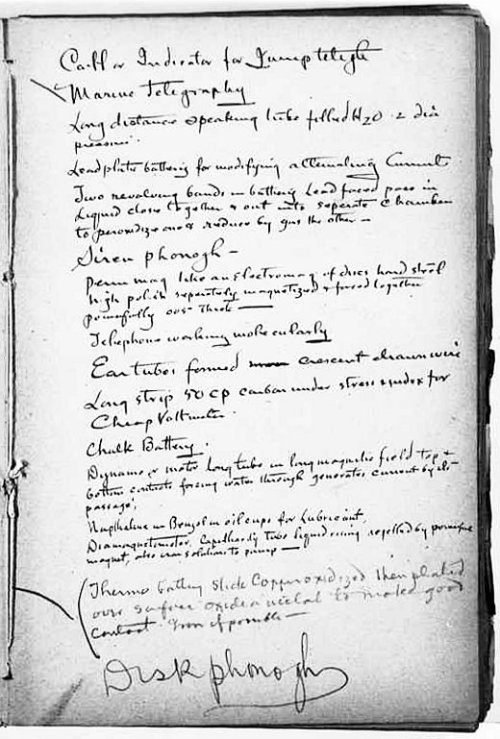 Call or Indicator for Jump telegh
Marine Telegraphy
Long distance speaking tube filled H2O 2 dia
pressure.
Lead plate battery for modifying alternating Current
Two revolving bands in battery Lead faced pass in
liquid close together & out into seperate Chamber
to peroxidize one & reduce by gas the other —
Siren phonogh —
perm mag like an Electromag of discs hard steel
high polish seperately magnetized & forced together
powefully 005 thick —
Telephone working molecularly
Ear tubes formed crescent drawn wire
Long strip 50 cp carbon under stress & index for
Cheap Voltmeter.
Chalk Battery.
Dynamo or motor Long tube in long magnetic field top &
bottom contacts forcing water through generates current by its
passage;
Napthalene in Benzol in oil cups for Lubricant.
Diamagnetometer. Capilliardy two liquid rising repelled by powerful
magnet, also iron solutions to pump —
Thermo battery slick Copper oxidized then plated
over surface oxide nickel to make good
contact Iron if possible —
Disk phonogh